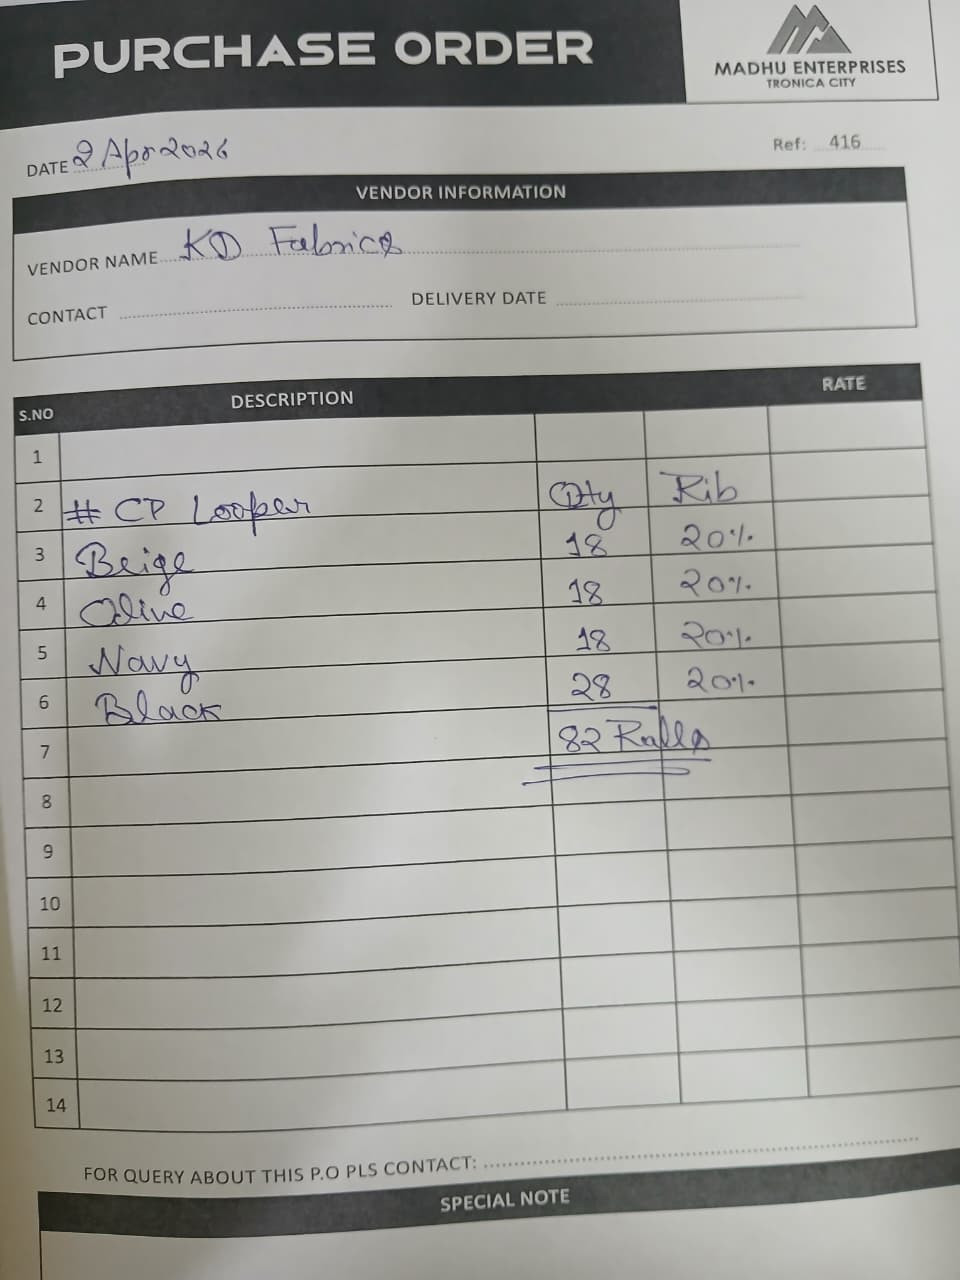 PURCHASE ORDER
MADHU ENTERPRISES
TRONICA CITY
DATE 2 Apr 2026
Ref: 416
VENDOR INFORMATION
VENDOR NAME KD Fabrics
CONTACT DELIVERY DATE
S.NO DESCRIPTION RATE
1
2 # CP Looper Qty Rib
3 Beige 18 20%
4 Olive 18 20%
5 Navy 18 20%
6 Black 28 20%
7 82 Rolls
8
9
10
11
12
13
14
FOR QUERY ABOUT THIS P.O PLS CONTACT:
SPECIAL NOTE